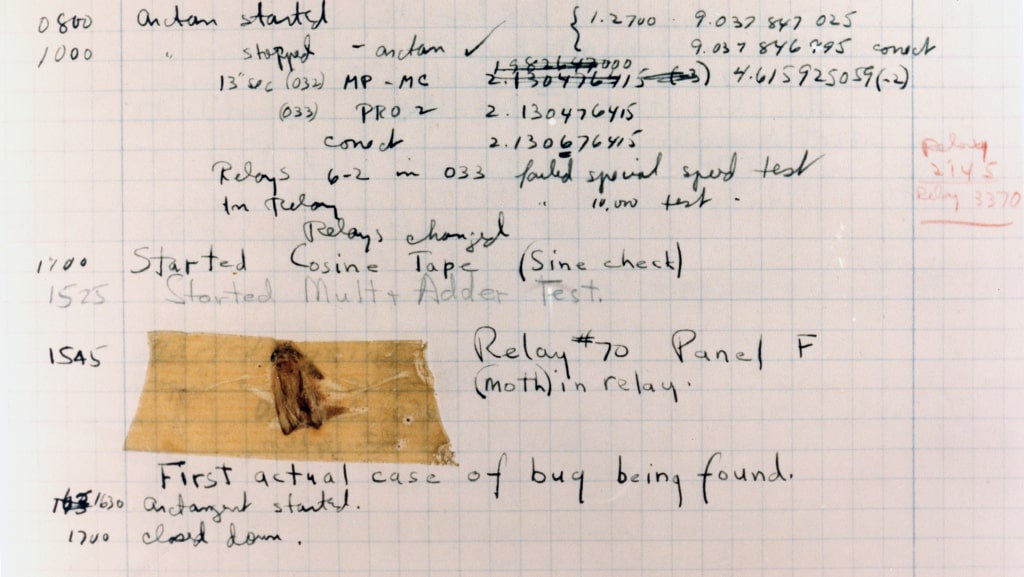 0800 arctan started { 1.2700 9.037 847 025
1000 " stopped - arctan ✓ 9.037 846 995 conect
13" sec (032) MP - MC 2.130476415 (-3) 4.615925059(-2)
(033) PRO 2 2.130476415
conect 2.130676415
Relays 6-2 in 033 failed special speed test
In Relay " 10,000 test.
Relay
2145
Relay 3370
Relays changed
1700 Started Cosine Tape (Sine check)
1525 Started Mult + Adder Test.
1545 Relay #70 Panel F
(moth) in relay.
First actual case of bug being found.
1630 arctangent started.
1700 closed down.